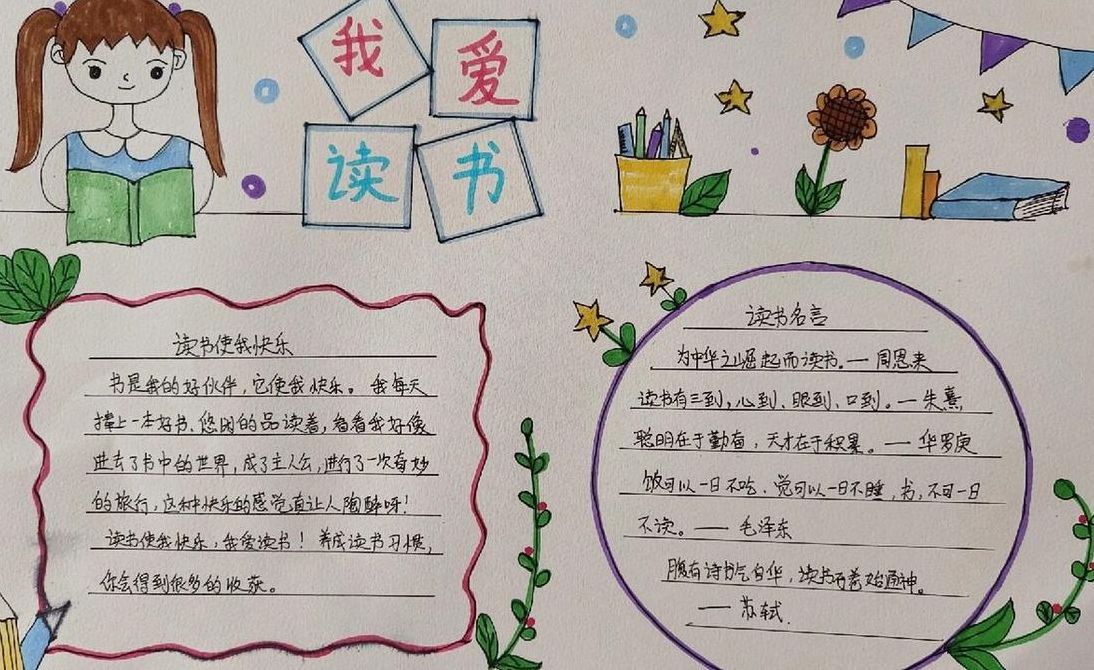 我爱
读书
读书使我快乐
书是我的好伙伴,它使我快乐。我每天
捧上一本好书、悠闲的品读着,看着我好像
进去了书中的世界,成了主人公,进行了一次奇妙
的旅行,这种快乐的感觉真让人陶醉呀!
读书使我快乐,我爱读书!养成读书习惯,
你会得到很多的收获。
读书名言
为中华之崛起而读书。—周恩来
读书有三到,心到、眼到、口到。—朱熹
聪明在于勤奋,天才在于积累。——华罗庚
饭可以一日不吃、觉可以一日不睡,书,不可一日
不读。——毛泽东
腹有诗书气自华,读书万卷始通神。
——苏轼.